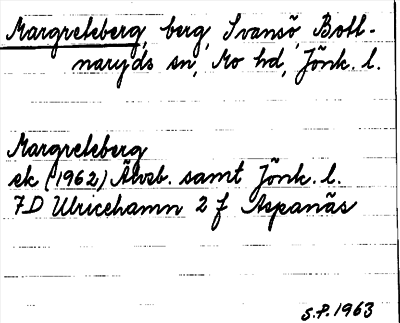 Margreteberg, berg, Svansö, Bott-
naryds sn, Mo hd, Jönk. l.
Margreteberg
ek (1962) Älvsb. samt Jönk. l.
7D Ulricehamn 2 f Aspanäs
S.P. 1963